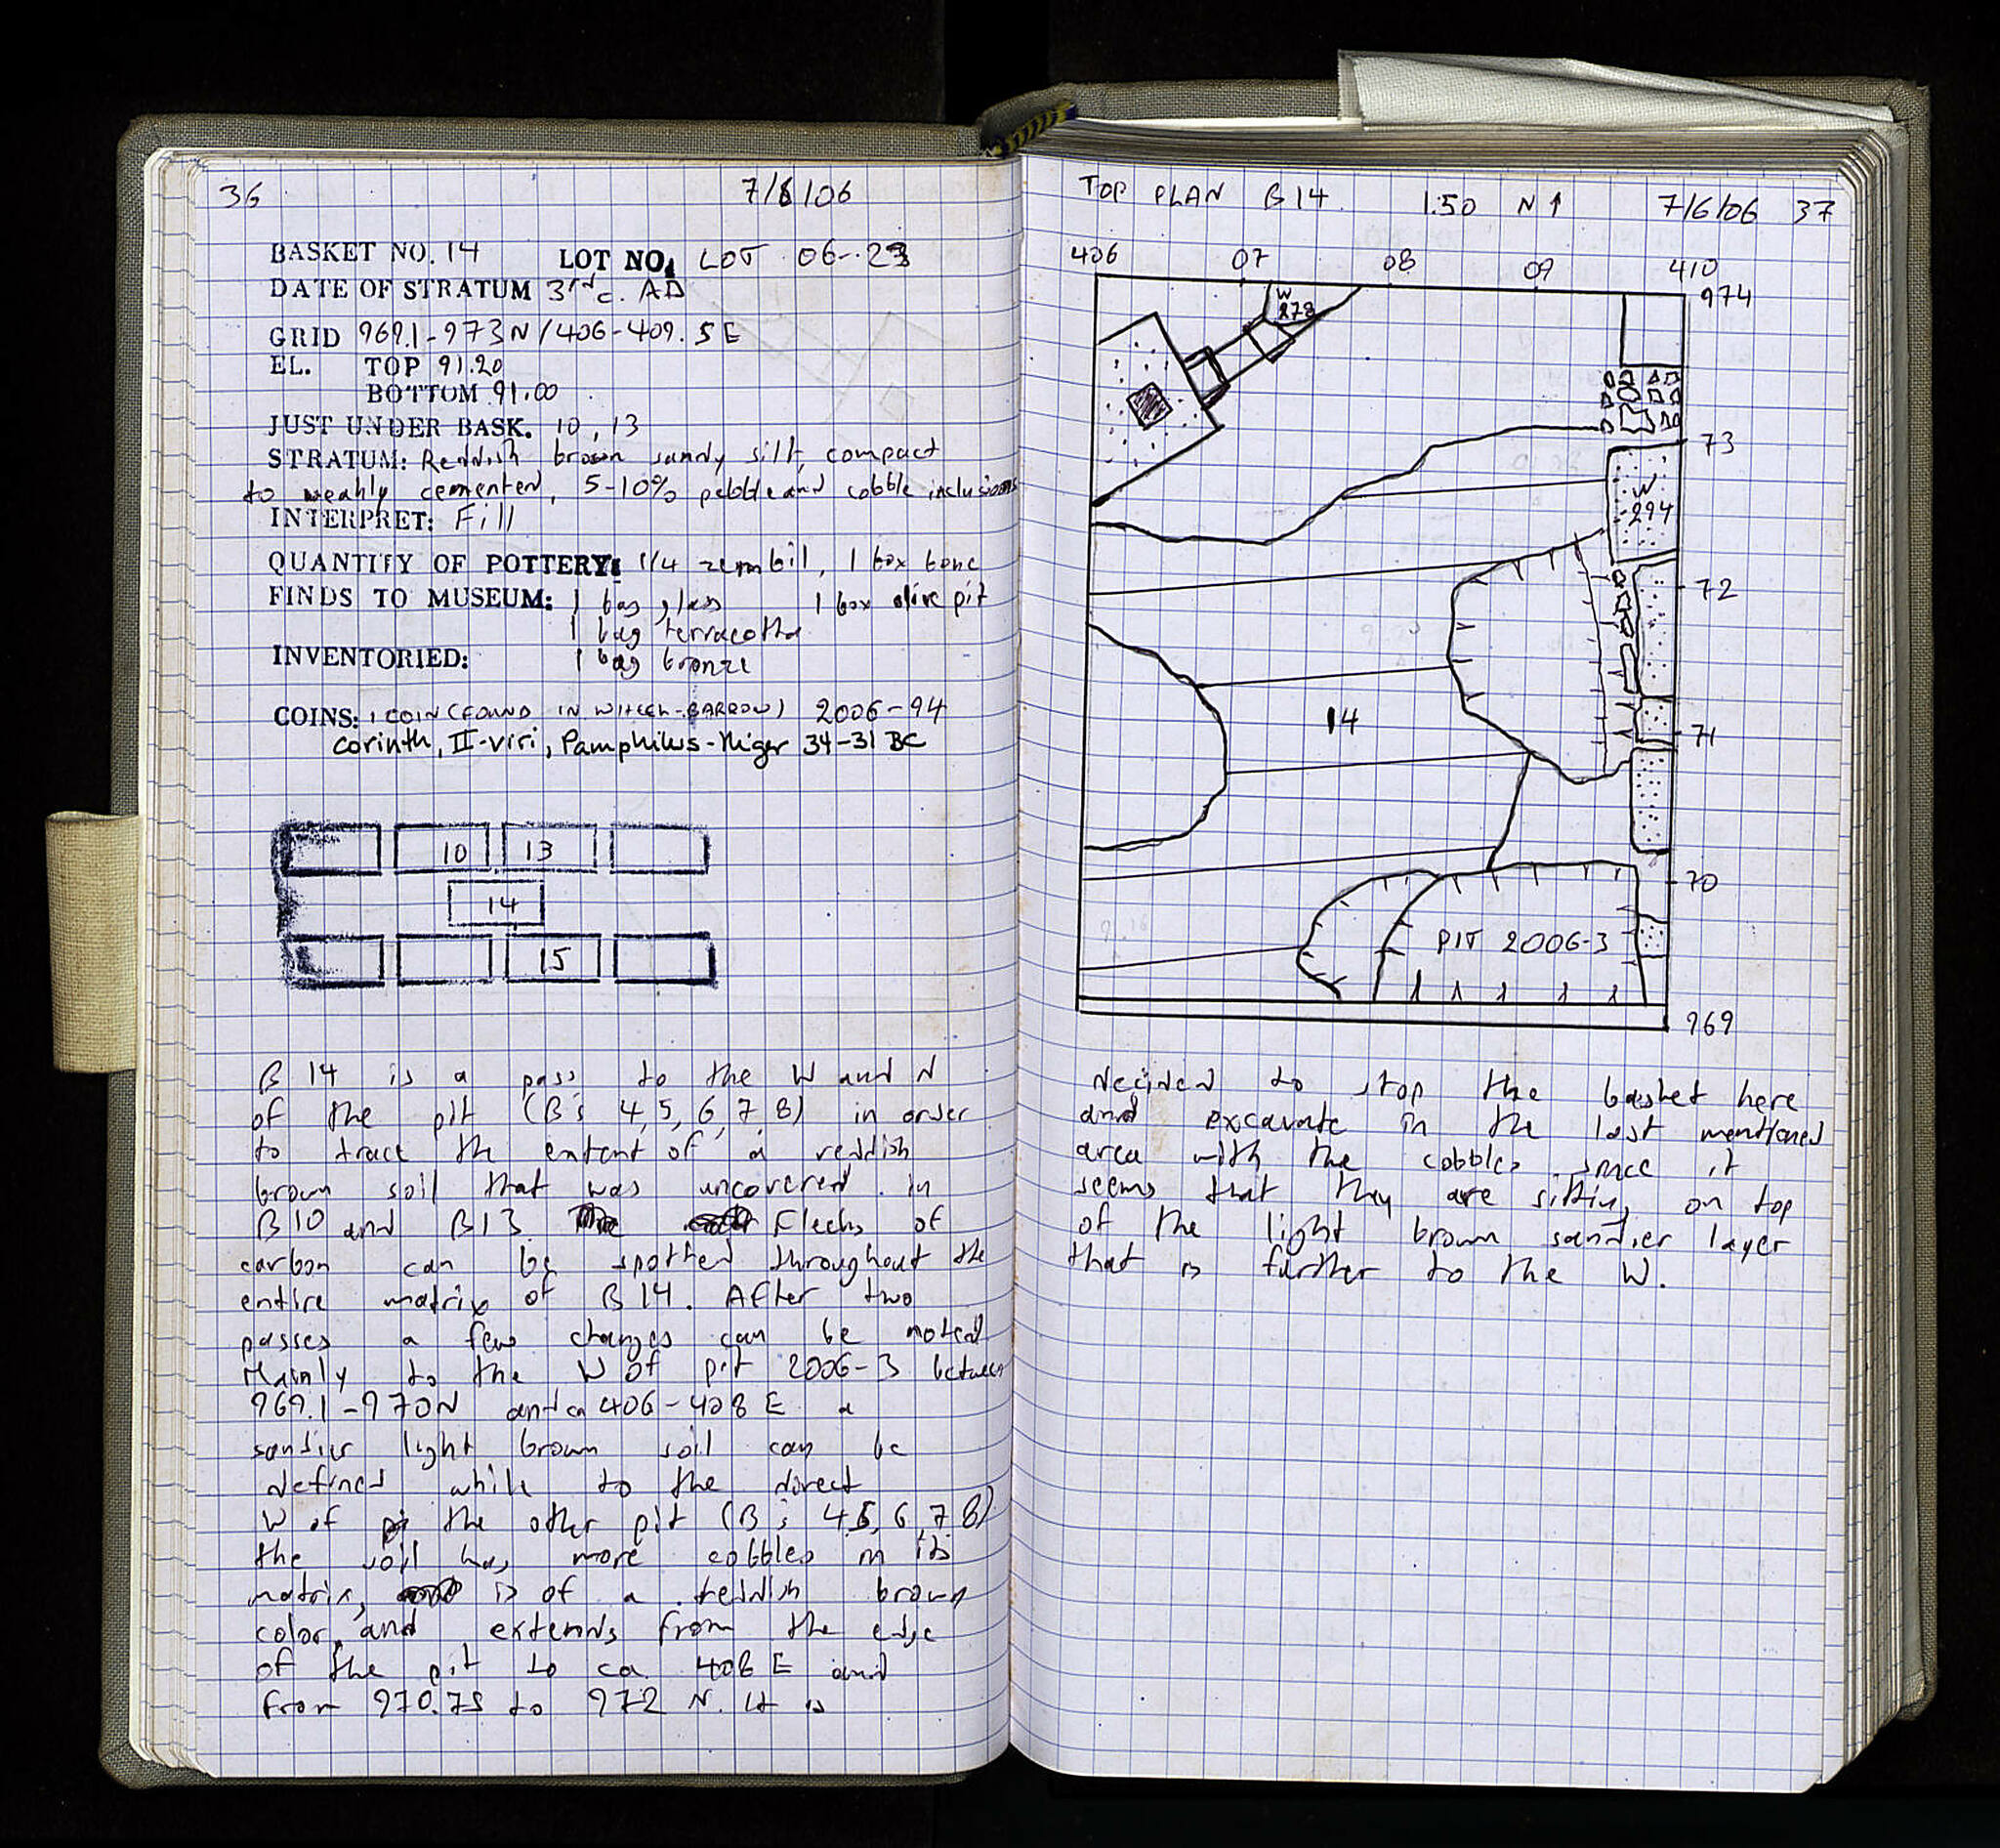 36 7/6/06
BASKET NO. 14 LOT NO. LOT 06-23
DATE OF STRATUM 3rd c. AD
GRID 969.1-973N/406-409.5E
EL. TOP 91.20
BOTTOM 91.00
JUST UNDER BASK. 10, 13
STRATUM: Reddish brown sandy silt, compact
to weakly cemented, 5-10% pebble and cobble inclusions
INTERPRET: Fill
QUANTITY OF POTTERY: 1/4 zembil, 1 box bone
FINDS TO MUSEUM: 1 bag glass 1 box olive pit
1 bag terracotta
INVENTORIED: 1 bag bronze
COINS: 1 COIN (FOUND IN WHEEL-BARROW) 2006-94
Corinth, II-viri, Pamphilus-Niger 34-31 BC
10 13
14
15
B 14 is a pass to the W and N
of the pit (B's 4, 5, 6, 7, 8) in order
to trace the extent of a reddish
brown soil that was uncovered in
B10 and B13. Flecks of
carbon can be spotted throughout the
entire matrix of B14. After two
passes a few changes can be noted
Mainly to the W of pit 2006-3 between
969.1-970N and ca 406-408 E a
sandier light brown soil can be
defined while to the direct
W of the other pit (B's 4,5,6,7,8)
the soil has more cobbles in its
matrix, is of a reddish brown
color, and extends from the edge
of the pit to ca 408 E and
from 970.75 to 972 N. It is
TOP PLAN B14 1:50 N↑ 7/6/06 37
406 07 08 09 410
974
W
278
73
W
294
72
14
71
70
PIT 2006-3
969
decided to stop the basket here
and excavate in the last mentioned
area with the cobbles since it
seems that they are sitting on top
of the light brown sandier layer
that is further to the W.